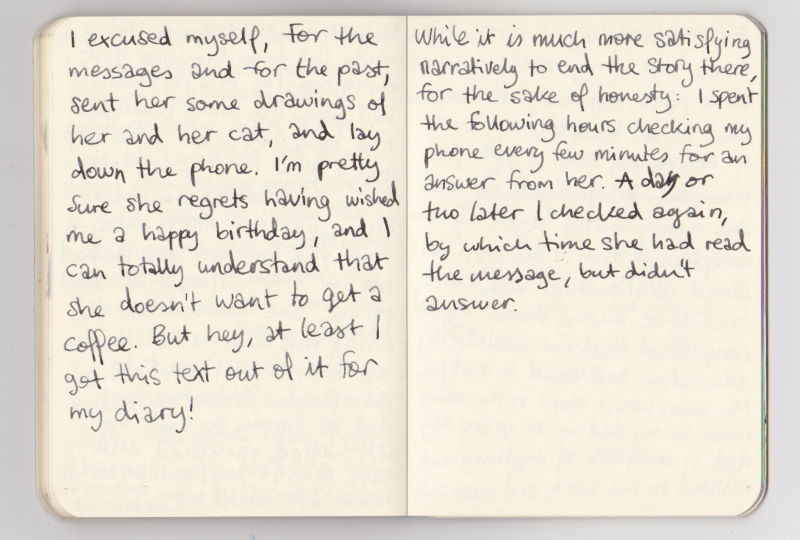 I excused myself, for the
messages and for the past,
sent her some drawings of
her and her cat, and lay
down the phone. I'm pretty
sure she regrets having wished
me a happy birthday, and I
can totally understand that
she doesn't want to get a
coffee. But hey, at least I
got this text out of it for
my diary!
While it is much more satisfying
narratively to end the story there,
for the sake of honesty: I spent
the following hours checking my
phone every few minutes for an
answer from her. A day or
two later I checked again,
by which time she had read
the message, but didn't
answer.